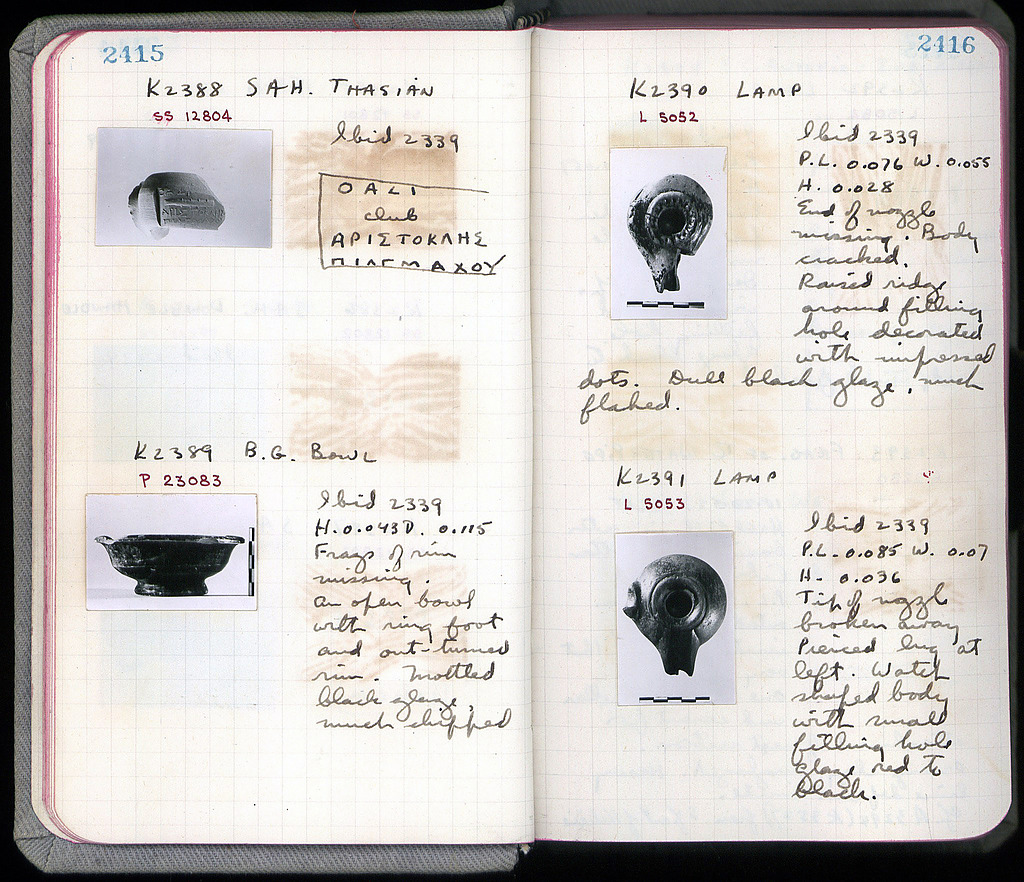 2415
K2388 SAH. THASIAN
SS 12804
Ibid 2339
ΘΑΣΙ
club
ΑΡΙΣΤΟΚΛΗΣ
K2389 B.G. BOWL
P 23083
Ibid 2339
H. 0.043 D. 0.115
Frags of rim
missing.
An open bowl
with ring foot
and out-turned
rim. Mottled
black glaze,
much chipped
2416
K2390 LAMP
L 5052
Ibid 2339
P.L. 0.076 W. 0.055
H. 0.028
End of nozzle
missing. Body
cracked.
Raised ridge
around filling
hole decorated
with impressed
dots. Dull black glaze, much
flaked.
K2391 LAMP
L 5053
Ibid 2339
P.L. 0.085 W. 0.07
H. 0.036
Tip of nozzle
broken away
Pierced lug at
left. Watch
shaped body
with small
filling hole
glaze red to
black.